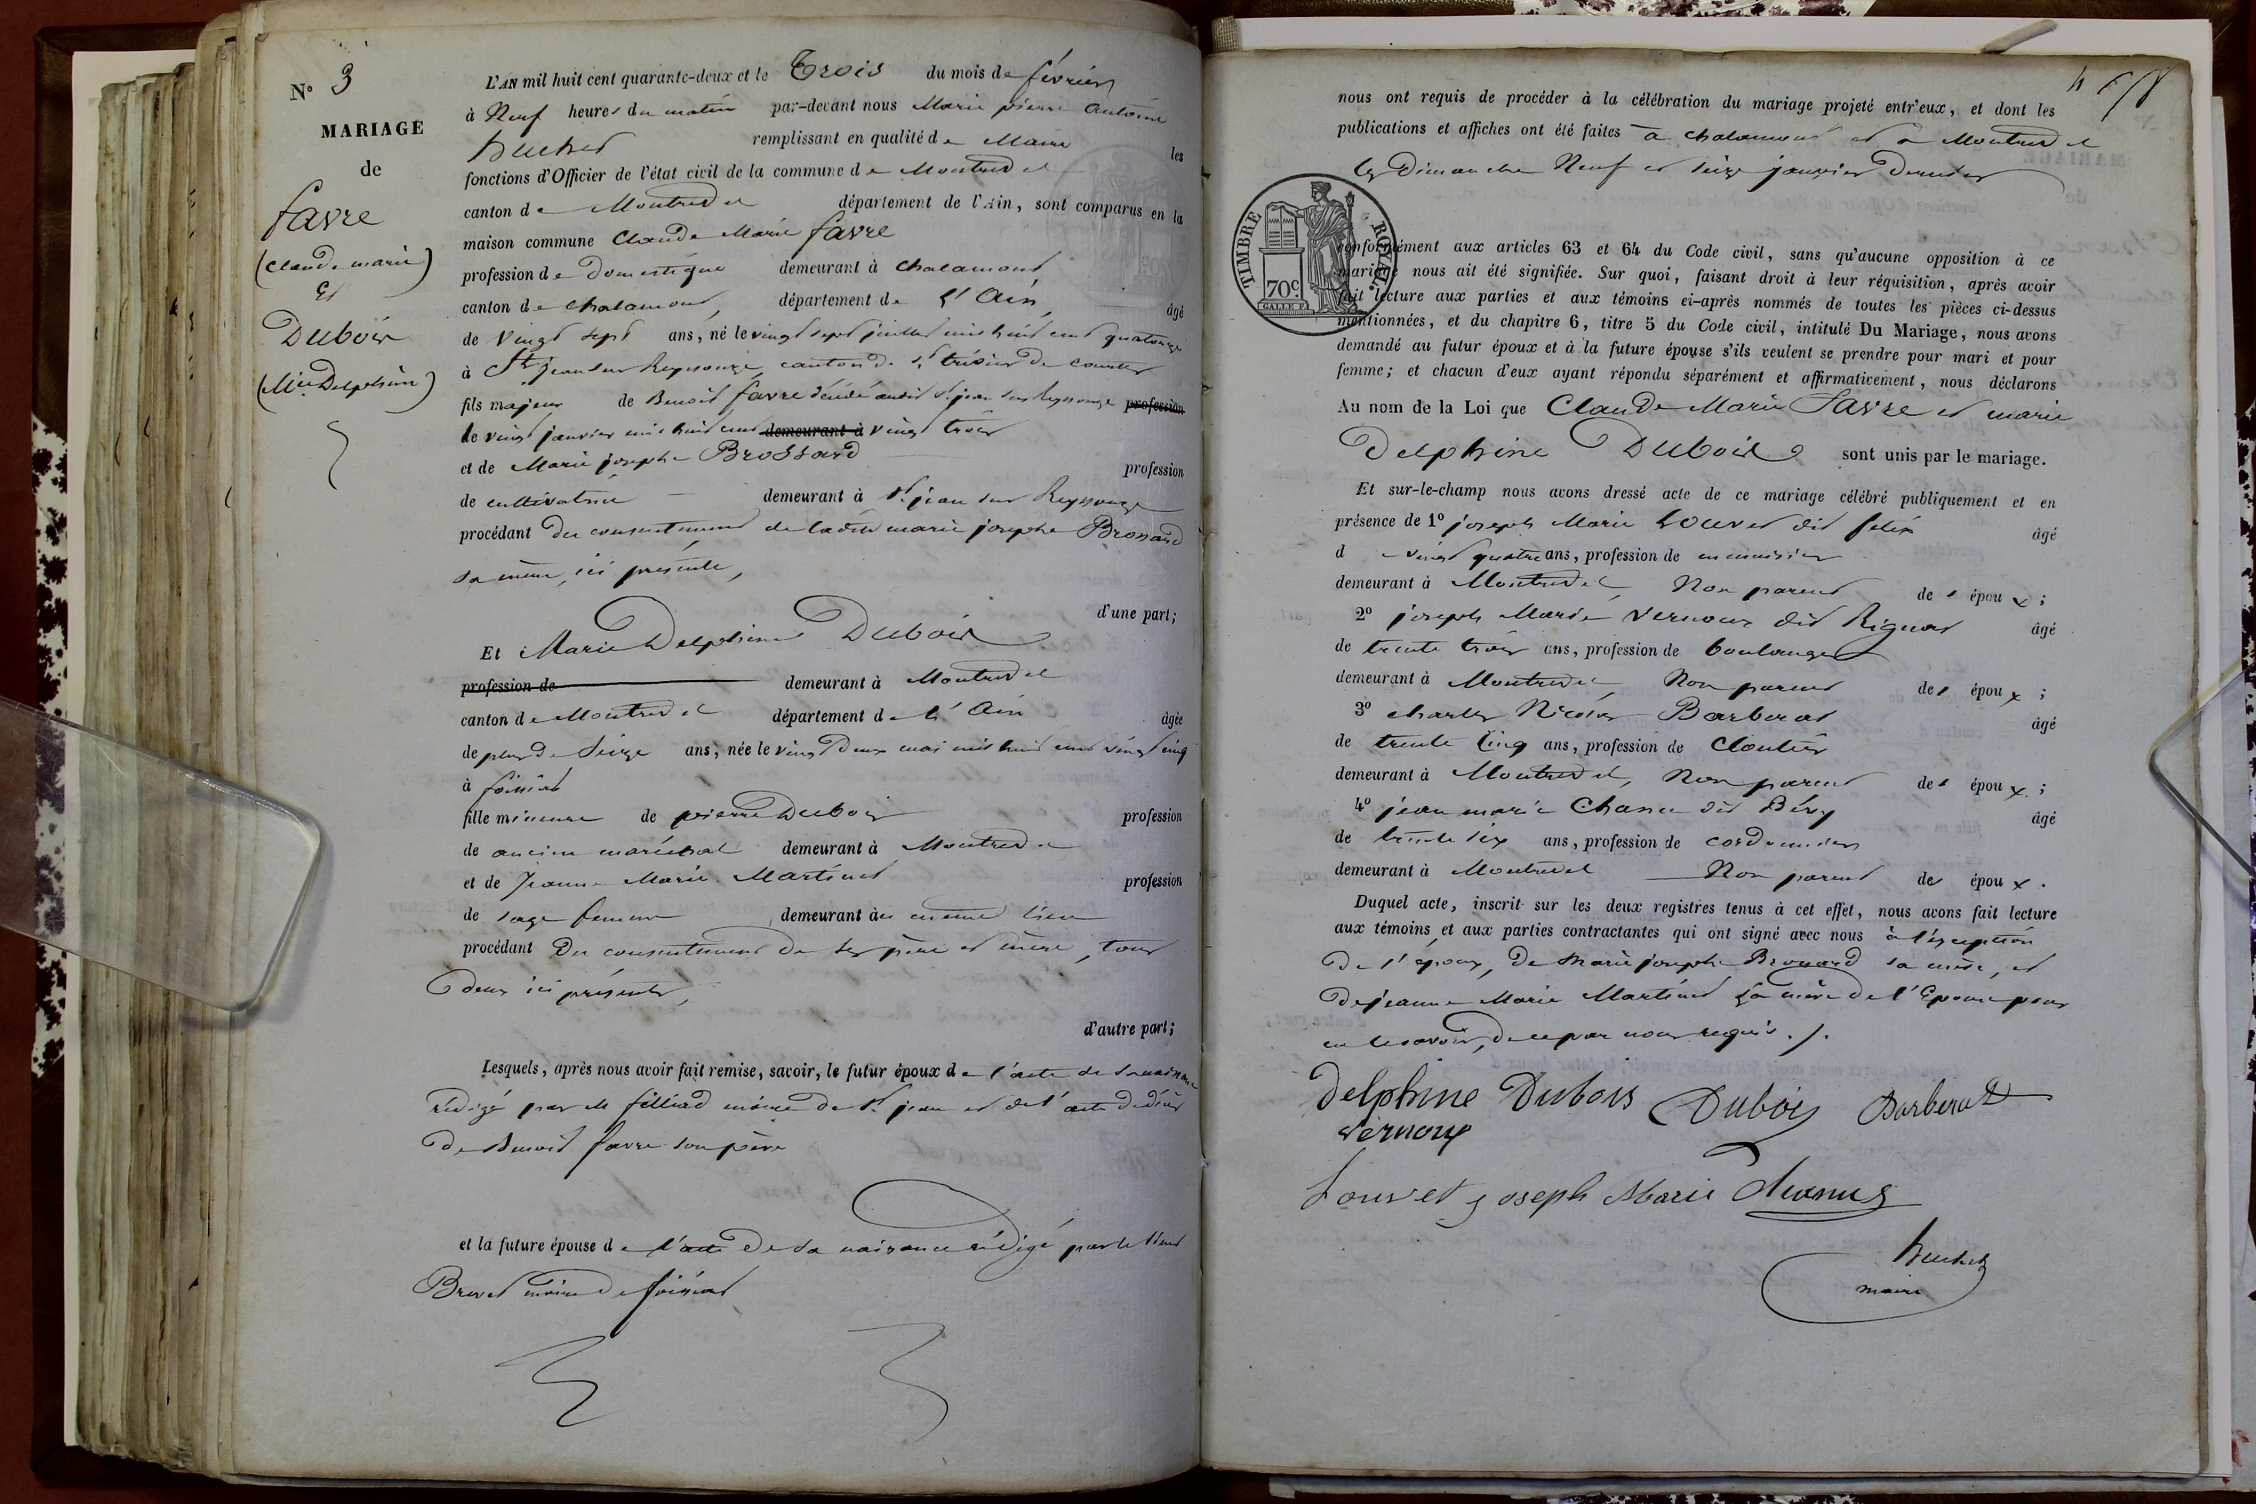 N° 3
MARIAGE
de
favre
(claude marie)
Et
Dubois
(Mie Delphine)
L'AN mil huit cent quarante-deux et le Trois du mois de février
à Neuf heures du matin par-devant nous Marie pierre antoine
huchet remplissant en qualité de Maire les
fonctions d'Officier de l'état civil de la commune de Montrevel
canton de Montrevel département de l'Ain, sont comparus en la
maison commune Claude Marie favre
profession de Domestique demeurant à chalamont
canton de chalamont, département de l'Ain, âgé
de vingt sept ans, né le vingt sept juillet mil huit cent quatorze
à St jean sur Reyssouze, canton de st trivier de courtes
fils majeur de Benoit favre décédé audit st jean sur Reyssouze profession
le vingt janvier mil huit cent demeurant à vingt trois
et de Marie josephe Brossard profession
de cultivatrice demeurant à st jean sur Reyssouze
procédant du consentement de ladite marie josephe Brossard
sa mère, ici présente,
d'une part;
Et Marie Delphine Dubois
profession de demeurant à Montrevel
canton de Montrevel département de l'Ain âgée
de plus de Seize ans, née le vingt Deux mai mil huit cent vingt cinq
à foissiat
fille mineure de pierre Dubois profession
de ancien maréchal demeurant à Montrevel
et de Jeanne Marie Martinet profession
de sage femme demeurant au même lieu
procédant Du consentement de ses père et mère, tous
deux ici présents,
d'autre part;
Lesquels, après nous avoir fait remise, savoir, le futur époux de l'acte de sa naissance
rédigé par M filliard maire de St jean et de l'acte de décès
de Benoit favre son père
et la future épouse de l'acte de sa naissance rédigé par le sieur
Brevet maire de foissiat
nous ont requis de procéder à la célébration du mariage projeté entr'eux, et dont les
publications et affiches ont été faites à chalamont et à Montrevel
les Dimanches Neuf et seize janvier Dernier
TIMBRE ROYAL
70c.
conformément aux articles 63 et 64 du Code civil, sans qu'aucune opposition à ce
mariage nous ait été signifiée. Sur quoi, faisant droit à leur réquisition, après avoir
fait lecture aux parties et aux témoins ci-après nommés de toutes les pièces ci-dessus
mentionnées, et du chapitre 6, titre 5 du Code civil, intitulé Du Mariage, nous avons
demandé au futur époux et à la future épouse s'ils veulent se prendre pour mari et pour
femme; et chacun d'eux ayant répondu séparément et affirmativement, nous déclarons
Au nom de la Loi que Claude Marie Favre et marie
Delphine Dubois sont unis par le mariage.
Et sur-le-champ nous avons dressé acte de ce mariage célébré publiquement et en
présence de 1° joseph Marie Louvet dit felix âgé
de vingt quatre ans, profession de menuisier
demeurant à Montrevel, Non parent des époux;
2° joseph Marie Vernoux dit Rignat âgé
de trente trois ans, profession de boulanger
demeurant à Montrevel, Non parent des époux;
3° charles Nicolas Barberat âgé
de trente cinq ans, profession de Cloutier
demeurant à Montrevel, Non parent des époux;
4° jean marie Chanu dit Bévy âgé
de trente six ans, profession de cordonnier
demeurant à Montrevel Non parent des époux.
Duquel acte, inscrit sur les deux registres tenus à cet effet, nous avons fait lecture
aux témoins et aux parties contractantes qui ont signé avec nous à l'exception
De l'époux, De Marie josephe Brossard sa mère, et
De jeanne Marie Martinet la mère de l'Epouse pour
ne le savoir, de ce par nous requis.
Delphine Dubois Dubois Barberat
vernoux
Louvet joseph Marie
huchet
maire